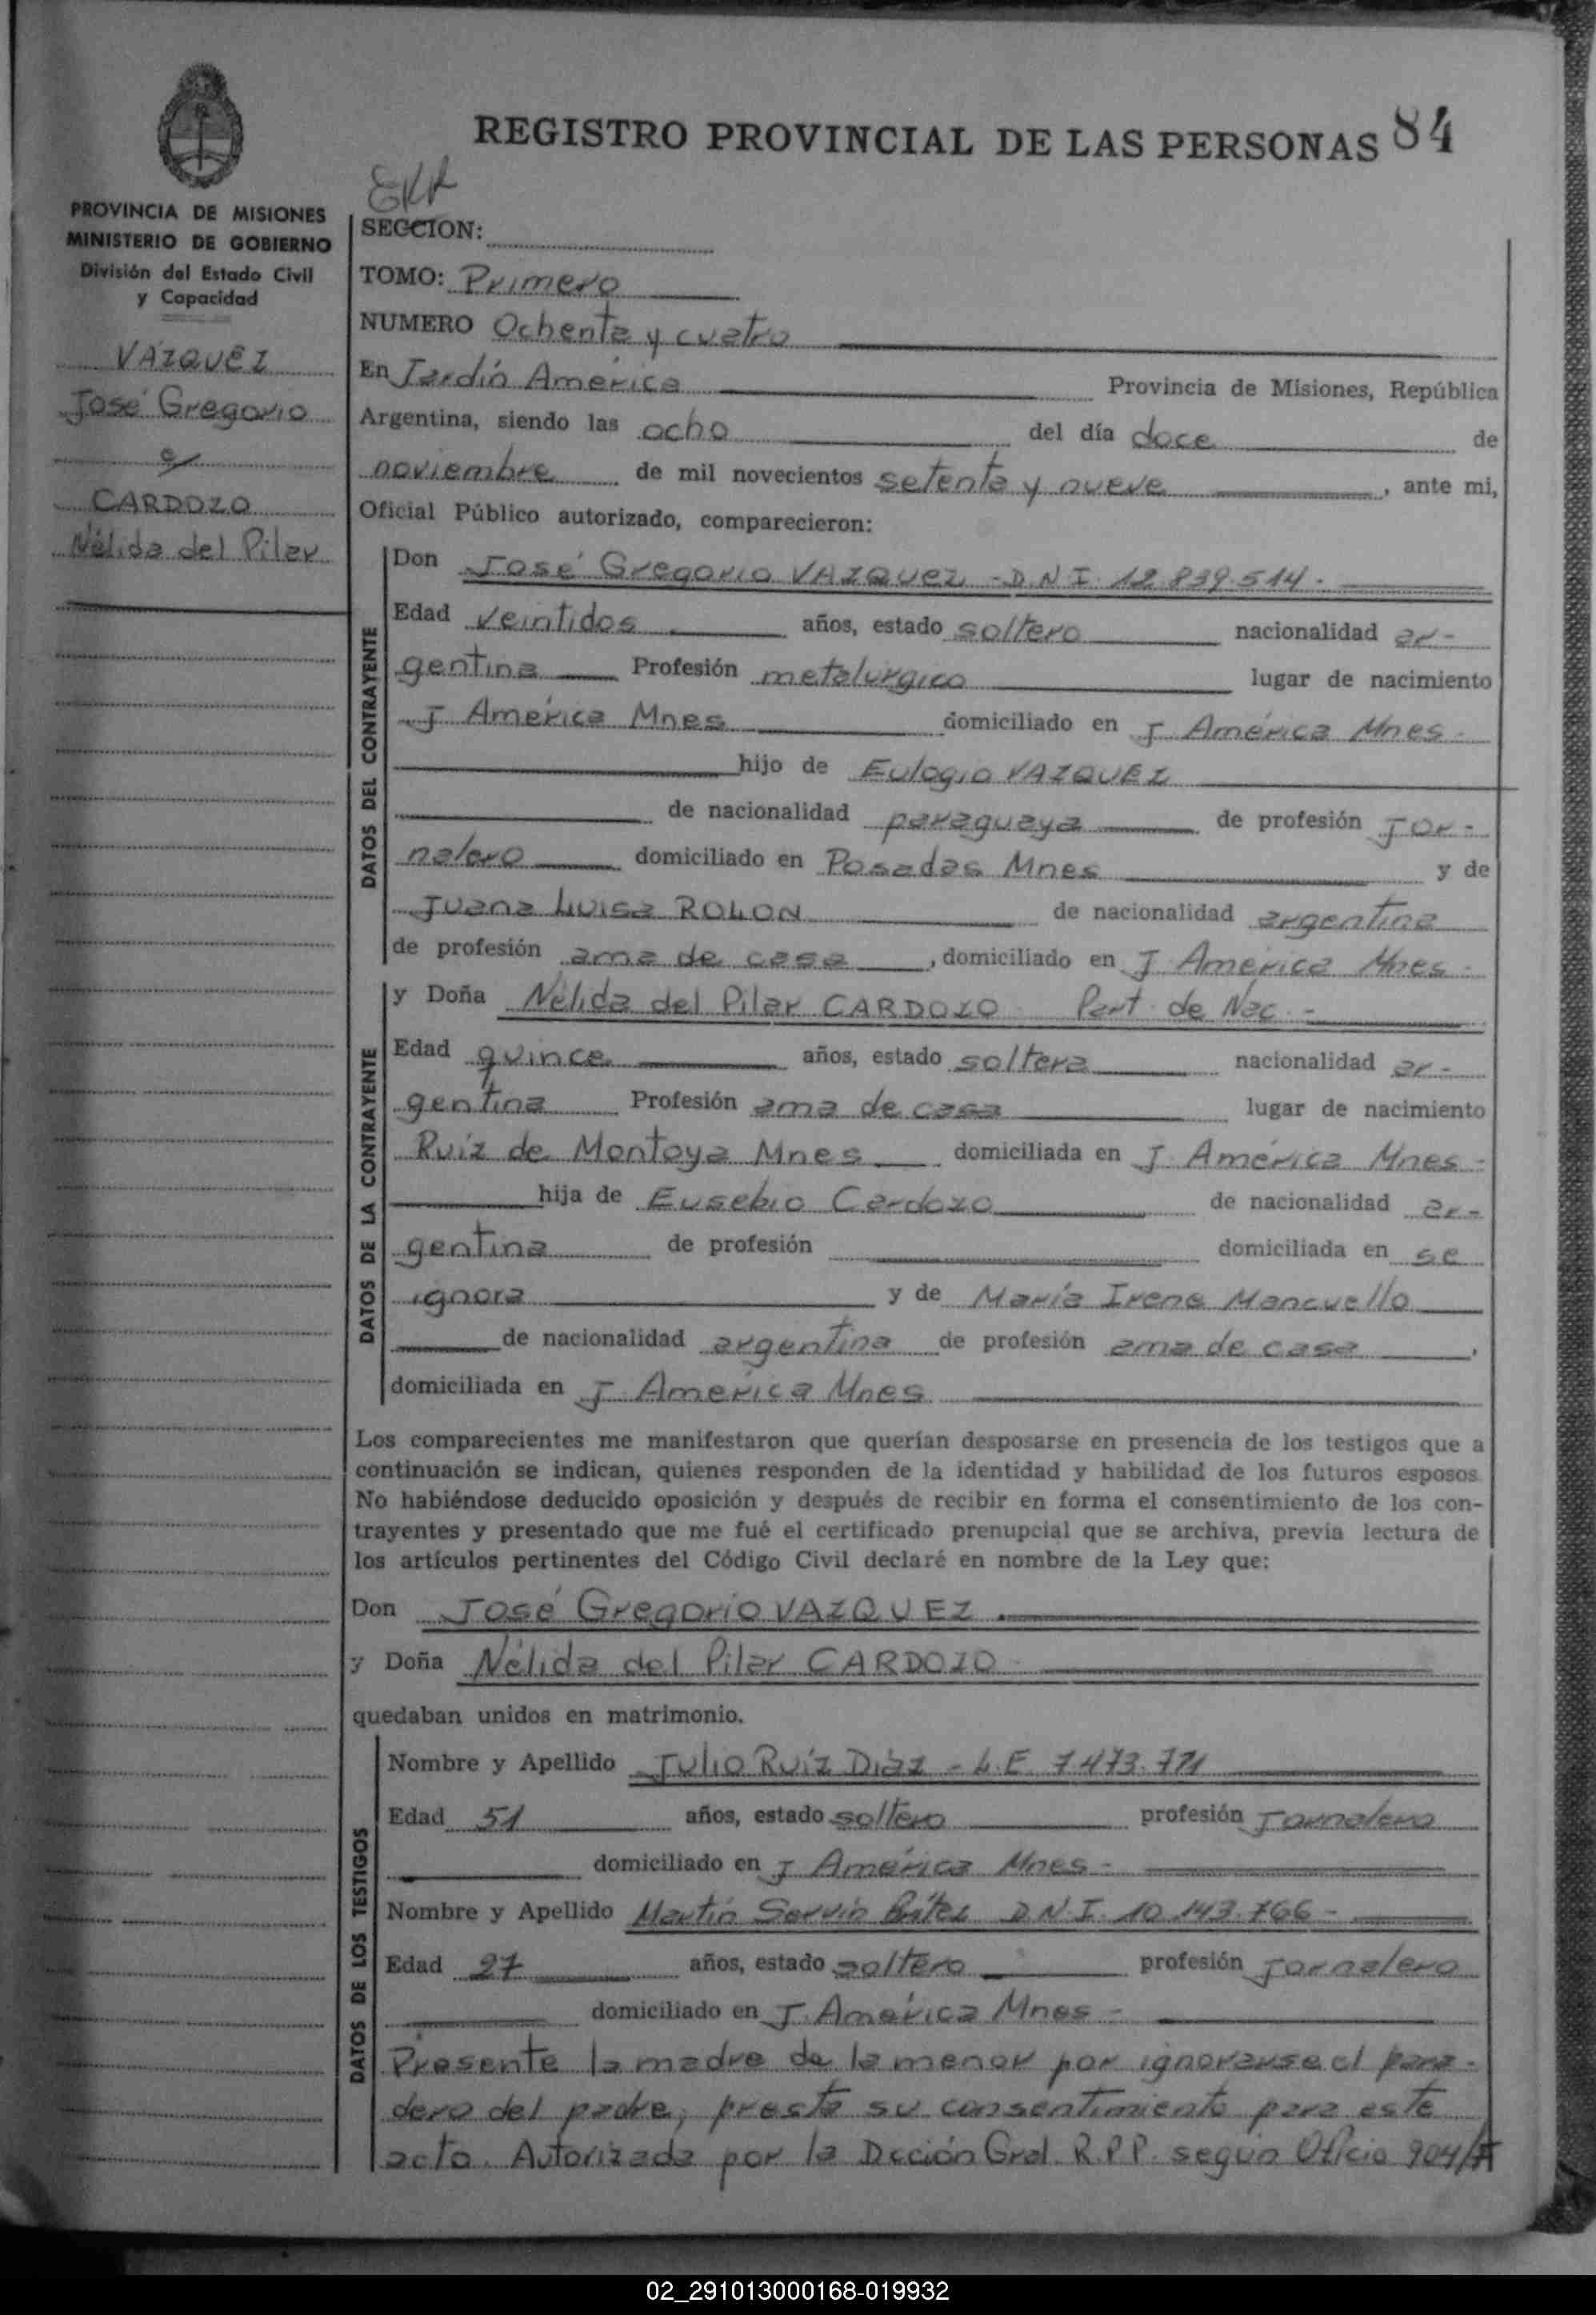 REGISTRO PROVINCIAL DE LAS PERSONAS 84
PROVINCIA DE MISIONES
MINISTERIO DE GOBIERNO
División del Estado Civil
y Capacidad
VÁZQUEZ
José Gregorio
c/
CARDOZO
Nélida del Pilar
SECCION:
TOMO: Primero
NUMERO Ochenta y cuatro
En Jardín América Provincia de Misiones, República
Argentina, siendo las ocho del día doce de
noviembre de mil novecientos setenta y nueve, ante mi,
Oficial Público autorizado, comparecieron:
DATOS DEL CONTRAYENTE
Don José Gregorio VAZQUEZ - D.N.I. 12.839.514.-
Edad veintidos años, estado soltero nacionalidad ar-
gentina Profesión metalúrgico lugar de nacimiento
J. América Mnes domiciliado en J. América Mnes.
hijo de Eulogio VAZQUEZ
de nacionalidad paraguaya de profesión jor-
nalero domiciliado en Posadas Mnes y de
Juana Luisa ROLON de nacionalidad argentina
de profesión ama de casa, domiciliado en J. América Mnes.
DATOS DE LA CONTRAYENTE
y Doña Nélida del Pilar CARDOZO Part. de Nac.-
Edad quince años, estado soltera nacionalidad ar-
gentina Profesión ama de casa lugar de nacimiento
Ruiz de Montoya Mnes domiciliada en J. América Mnes-
hija de Eusebio Cardozo de nacionalidad ar-
gentina de profesión domiciliada en se
ignora y de María Irene Mancuello
de nacionalidad argentina de profesión ama de casa,
domiciliada en J. América Mnes
Los comparecientes me manifestaron que querían desposarse en presencia de los testigos que a
continuación se indican, quienes responden de la identidad y habilidad de los futuros esposos.
No habiéndose deducido oposición y después de recibir en forma el consentimiento de los con-
trayentes y presentado que me fué el certificado prenupcial que se archiva, previa lectura de
los artículos pertinentes del Código Civil declaré en nombre de la Ley que:
Don José Gregorio VAZQUEZ
y Doña Nélida del Pilar CARDOZO
quedaban unidos en matrimonio.
DATOS DE LOS TESTIGOS
Nombre y Apellido Julio Ruíz Díaz - L.E. 7.473.771
Edad 51 años, estado soltero profesión Jornalero
domiciliado en J. América Mnes-
Nombre y Apellido Martín Servín Brítez D.N.I. 10.143.766-
Edad 27 años, estado soltero profesión jornalero
domiciliado en J. América Mnes-
Presente la madre de la menor por ignorarse el para-
dero del padre, presta su consentimiento para este
acto. Autorizada por la Dcción Gral. R.P.P. según Oficio 904/
02_291013000168-019932